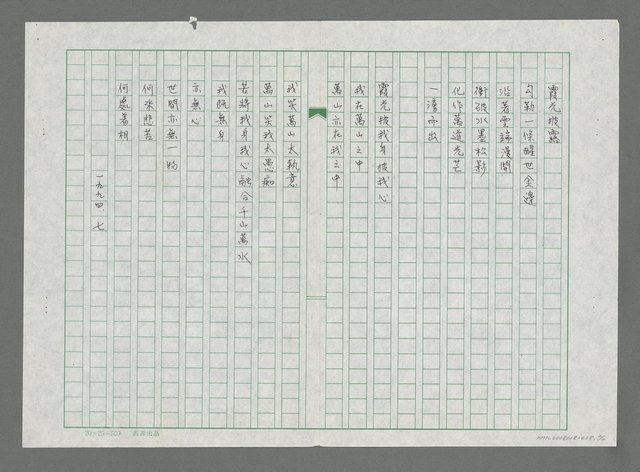 霞光披露
勾勒一條醒世金邊
沿著雲緣漫開
衝破水墨松影
化作萬道光芒
一湧而出
霞光披我身披我心
我在萬山之中
萬山亦在我之中
我笑萬山太執意
萬山笑我太愚痴
若將我身我心融合千山萬水
我既無身
亦無心
世間亦無一物
何來悲苦
何處著相
一九九四、七
20×25=500